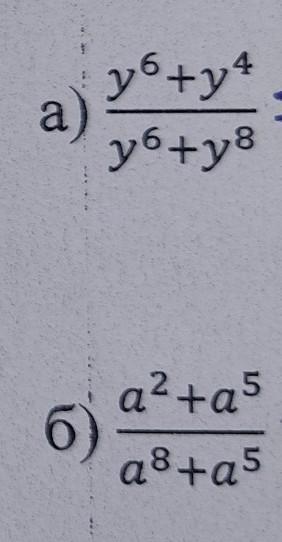 а) y⁶+y⁴
y⁶+y⁸
б) a²+a⁵
a⁸+a⁵